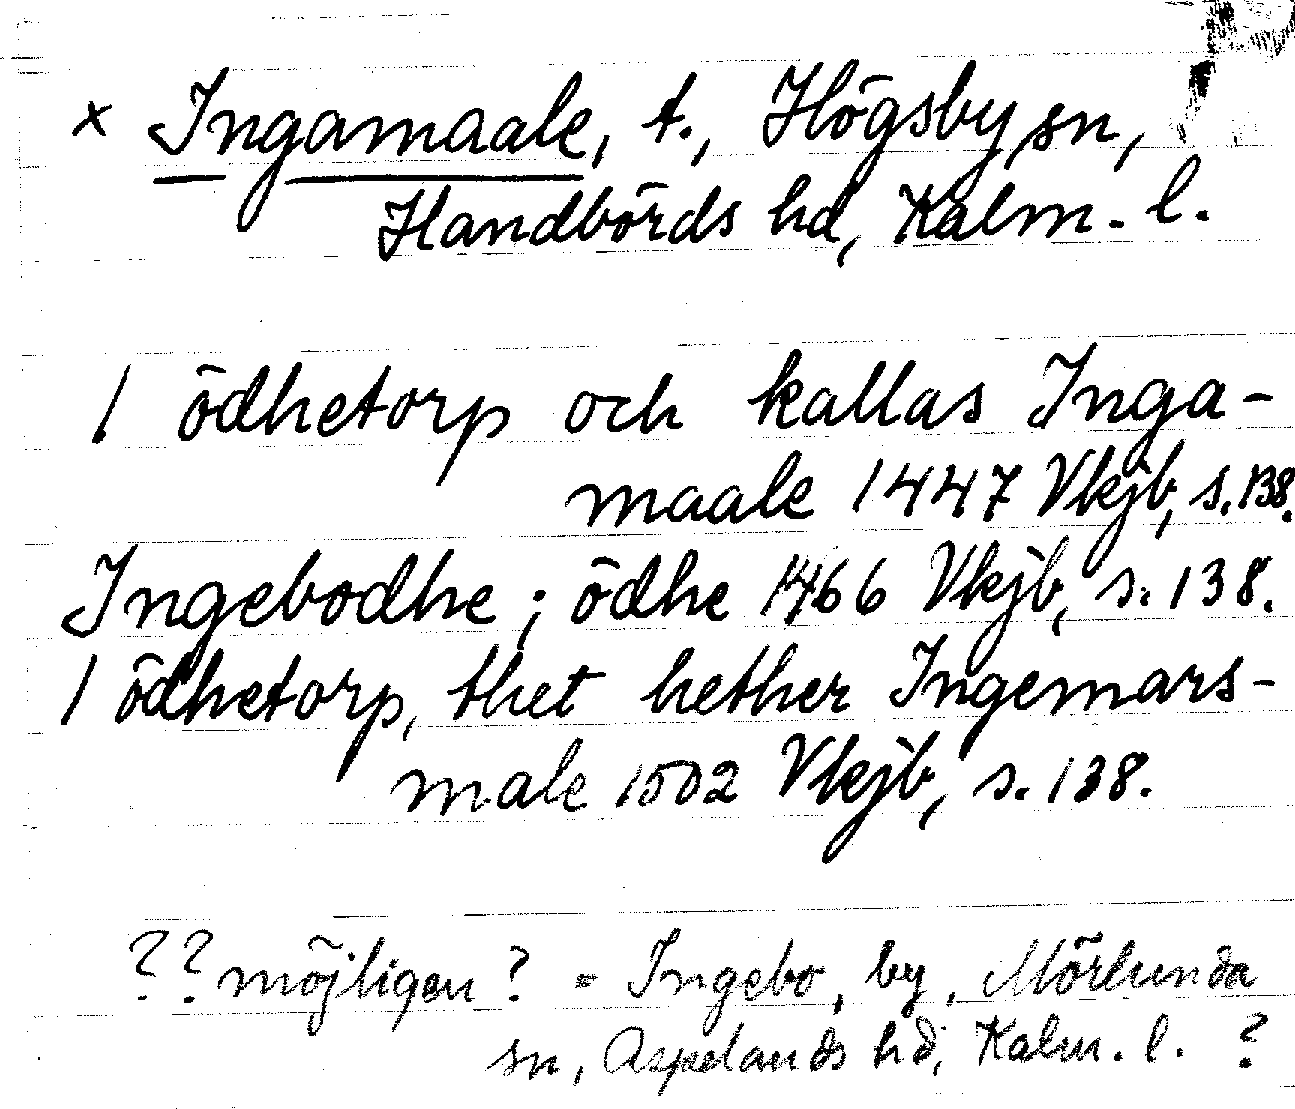 x Ingamaale, t., Högsby sn,
Handbörds hd, Kalm. l.
1 ödhetorp och kallas Inga-
maale 1447 Vkjb, s. 138.
Ingebodhe; ödhe 1466 Vkjb, s. 138.
1 ödhetorp, thet hether Ingemars-
male 1502 Vkjb, s. 138.
?? möjligen ? = Ingebo, by, Mörlunda
sn, Aspelands hd, Kalm. l. ?